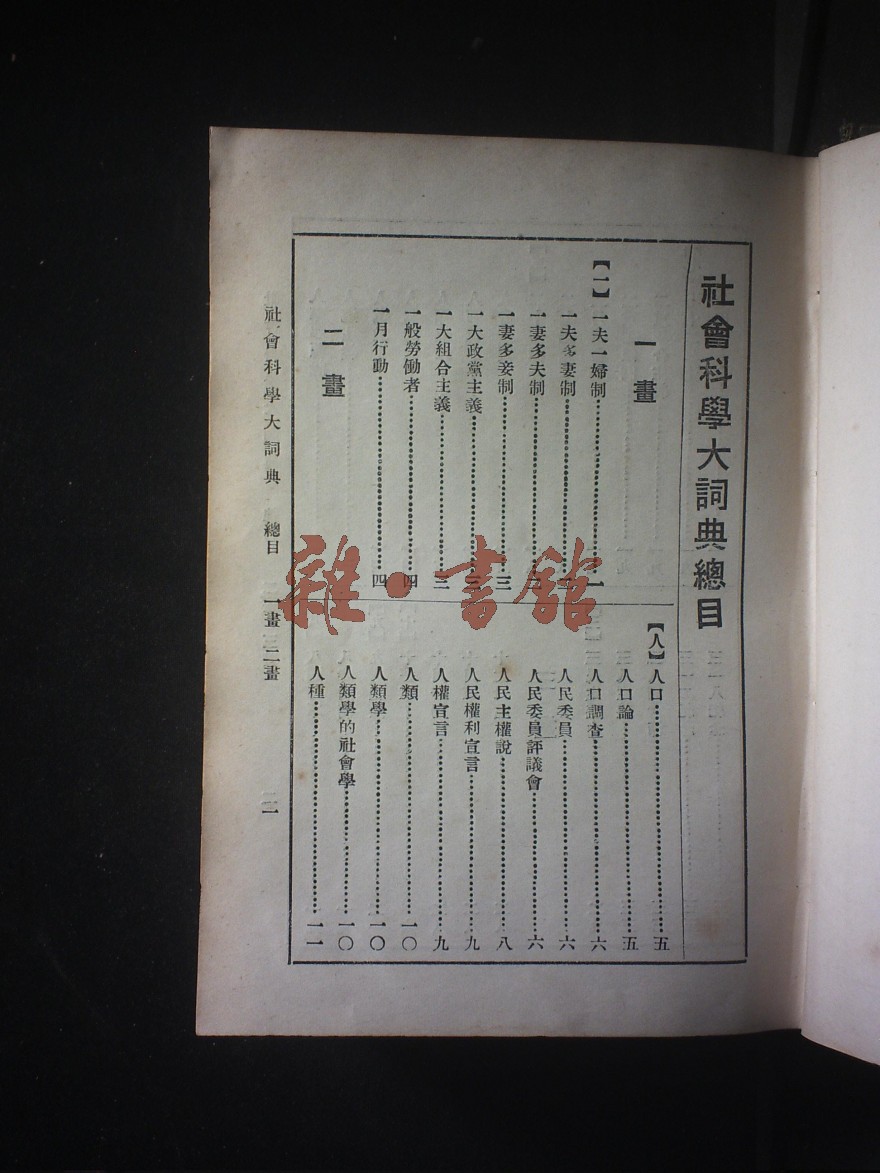 社會科學大詞典總目
一畫
【一】一夫一婦制……一
一夫多妻制……
一妻多夫制……
一妻多妾制……三
一大政黨主義……三
一大組合主義……三
一般勞働者……四
一月行動……四
二畫
【人】人口……五
人口論……五
人口調查……六
人民委員……六
人民委員評議會……六
人民主權說……八
人民權利宣言……九
人權宣言……九
人類……一〇
人類學……一〇
人類學的社會學……一〇
人種……一一
社會科學大詞典 總目 一畫 二畫
雜·書館